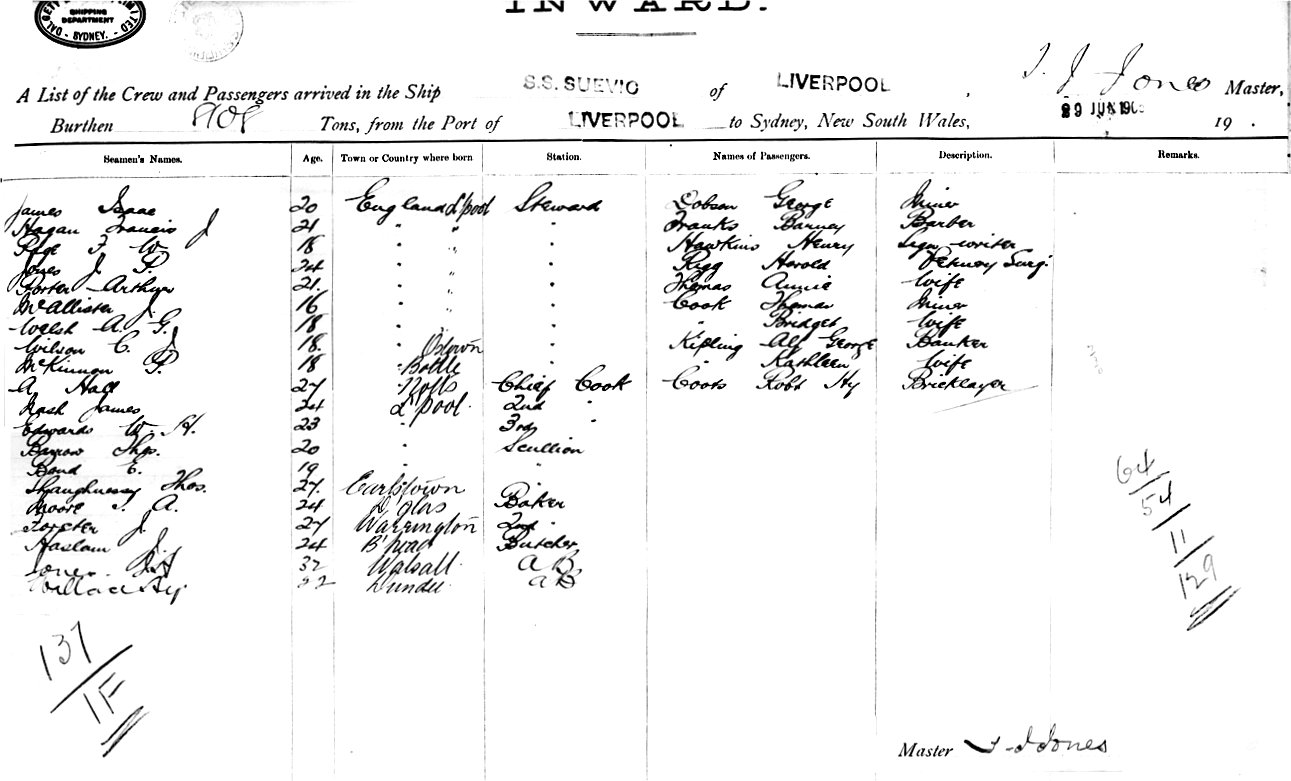 SHIPPING
DEPARTMENT
SYDNEY.
INWARD.
A List of the Crew and Passengers arrived in the Ship S.S. SUEVIC of LIVERPOOL, T. J Jones Master,
Burthen Tons, from the Port of LIVERPOOL to Sydney, New South Wales, 29 JUN 190 19 .
Seamen's Names. Age. Town or Country where born Station. Names of Passengers. Description. Remarks.
James Isaac 20 England L'pool Steward Dobson George Miner
Hagan Francis J 21 " " " Franks Barney Barber
F W 18 " " " Hawkins Henry Sign-writer
Jones J. P. 24 " " " Rigg Harold Surg.
Porter Arthur 21 " " " Thomas Annie Wife
McAllister J. 16 " " " Cook Thomas Miner
Welsh A. G. 18 " " " " Bridget Wife
Wilson C. J 18. " " Kipling Alf George Banker
McKinnon P. 18 Bottle " " Kathleen Wife
A Hall 27 Notts Chief Cook Coots Robt Hy Bricklayer
Nash James 24 L'pool 2nd "
Edwards W. H. 23 " 3rd "
Barrow Thos. 20 " Scullion
Bond E. 19 " "
Shaughnessy Thos. 27. Earlstown "
Moore A. 24 D'glas Baker
Forster J. 27 Warrington 2nd "
Haslam J. 24 B'head Butcher
Jones 32 Walsall A B
Wallace Hy Dundee A B
64
54
11
129
137
1F
Master T. J Jones